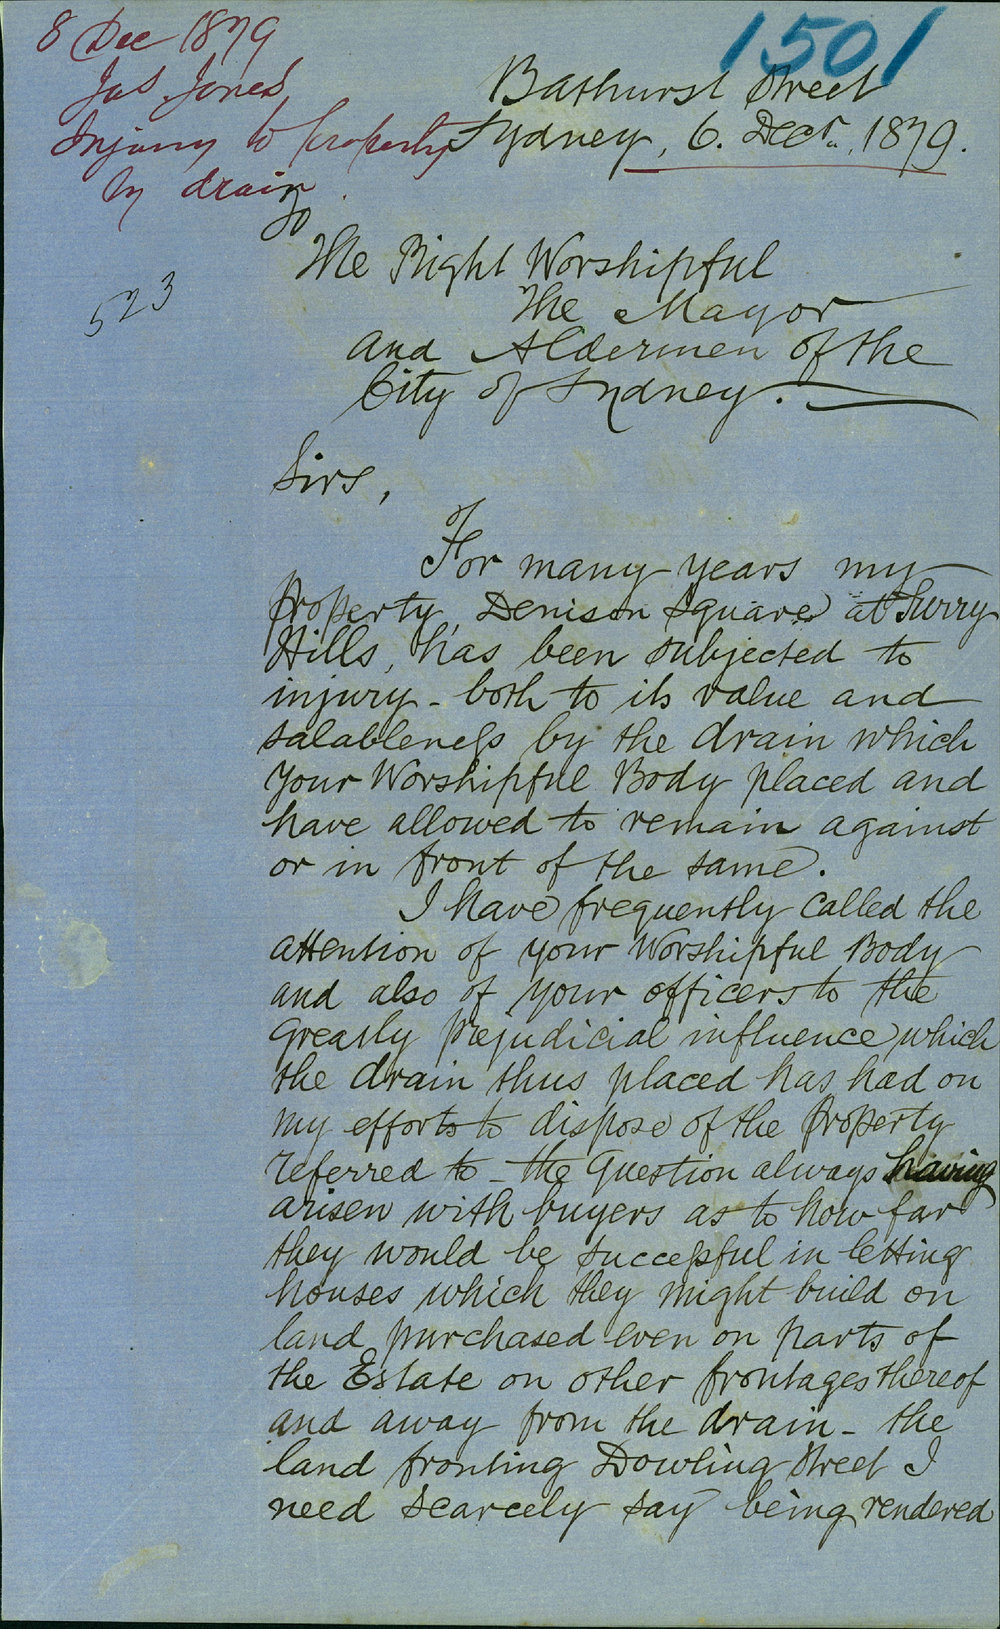 8 Dec 1879
Jas Jones
Injury to property
by drain
1501
Bathurst Street
Sydney, 6. Decr. 1879.
523
To
The Right Worshipful
The Mayor
and Aldermen of the
City of Sydney.
Sirs,
For many years my
property, Denison Square at Surry
Hills, has been subjected to
injury - both to its value and
salableness by the drain which
your Worshipful Body placed and
have allowed to remain against
or in front of the same.
I have frequently called the
attention of your Worshipful Body
and also of your officers to the
greatly prejudicial influence which
the drain thus placed has had on
my efforts to dispose of the property
referred to - the question always having
arisen with buyers as to how far
they would be successful in letting
houses which they might build on
land purchased even on parts of
the Estate on other frontages thereof
and away from the drain - the
land fronting Dowling Street I
need scarcely say being rendered